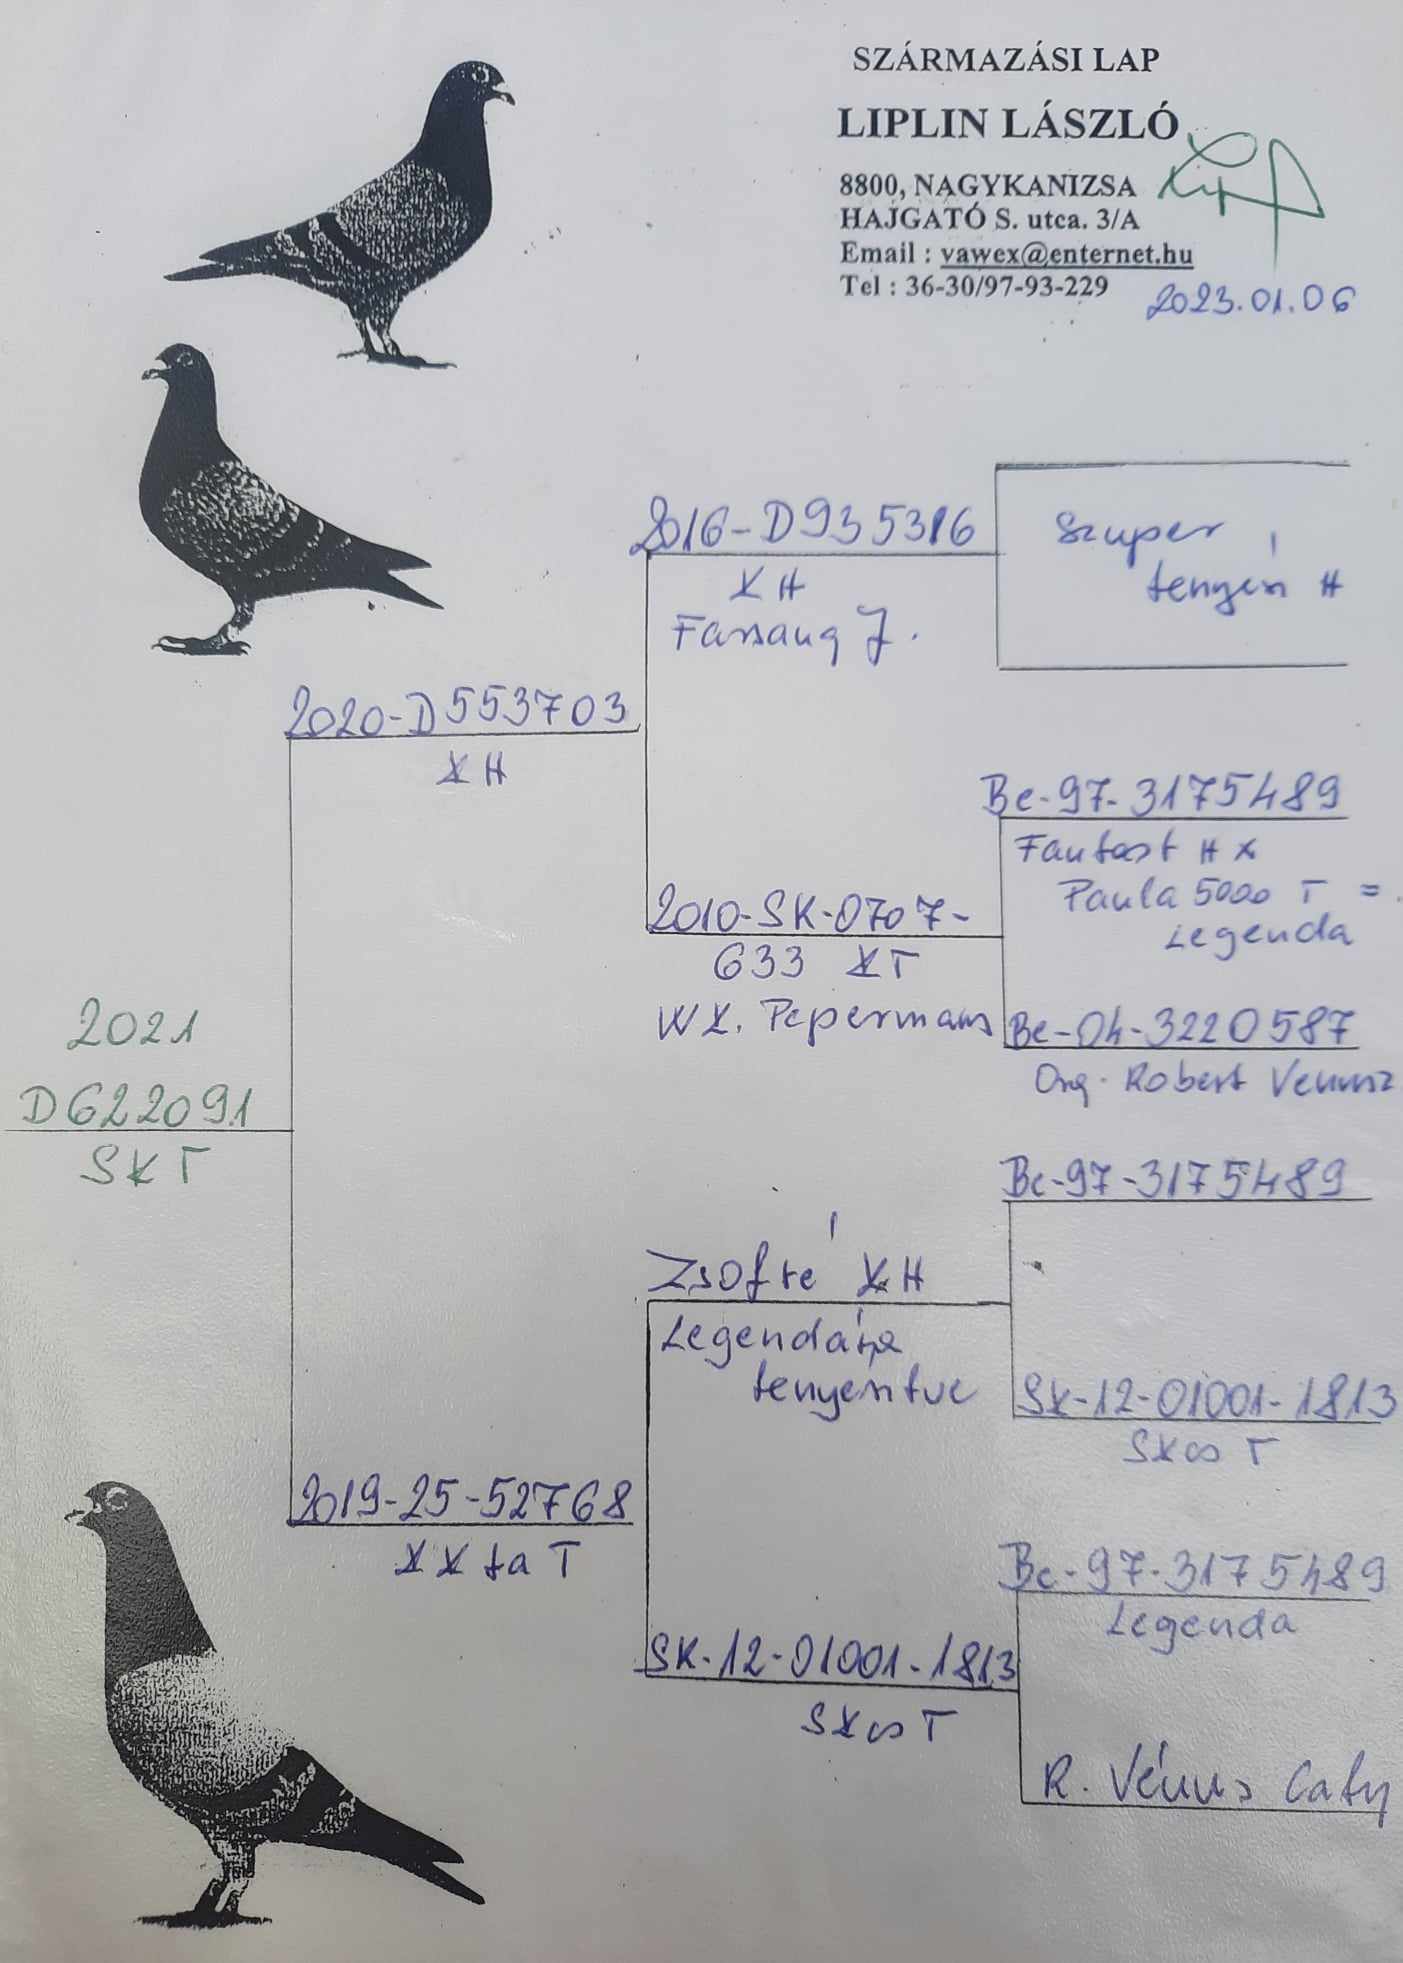 SZÁRMAZÁSI LAP
LIPLIN LÁSZLÓ
8800, NAGYKANIZSA
HAJGATÓ S. utca. 3/A
Email : vawex@enternet.hu
Tel : 36-30/97-93-229
2023.01.06
2021
D622091
SKT
2020-D553703
KH
2016-D935316
KH
J.
Szuper
H
2010-SK-0707-
633 KT
Be-97-3175489
Fantast H x
Paula 5000 T =
Legenda
Be-04-3220587
Robert
2019-25-52768
T
KH
Be-97-3175489
SK-12-01001-1813
T
SK-12-01001-1813
T
Be-97-3175489
Legenda
R. Vénus Caty